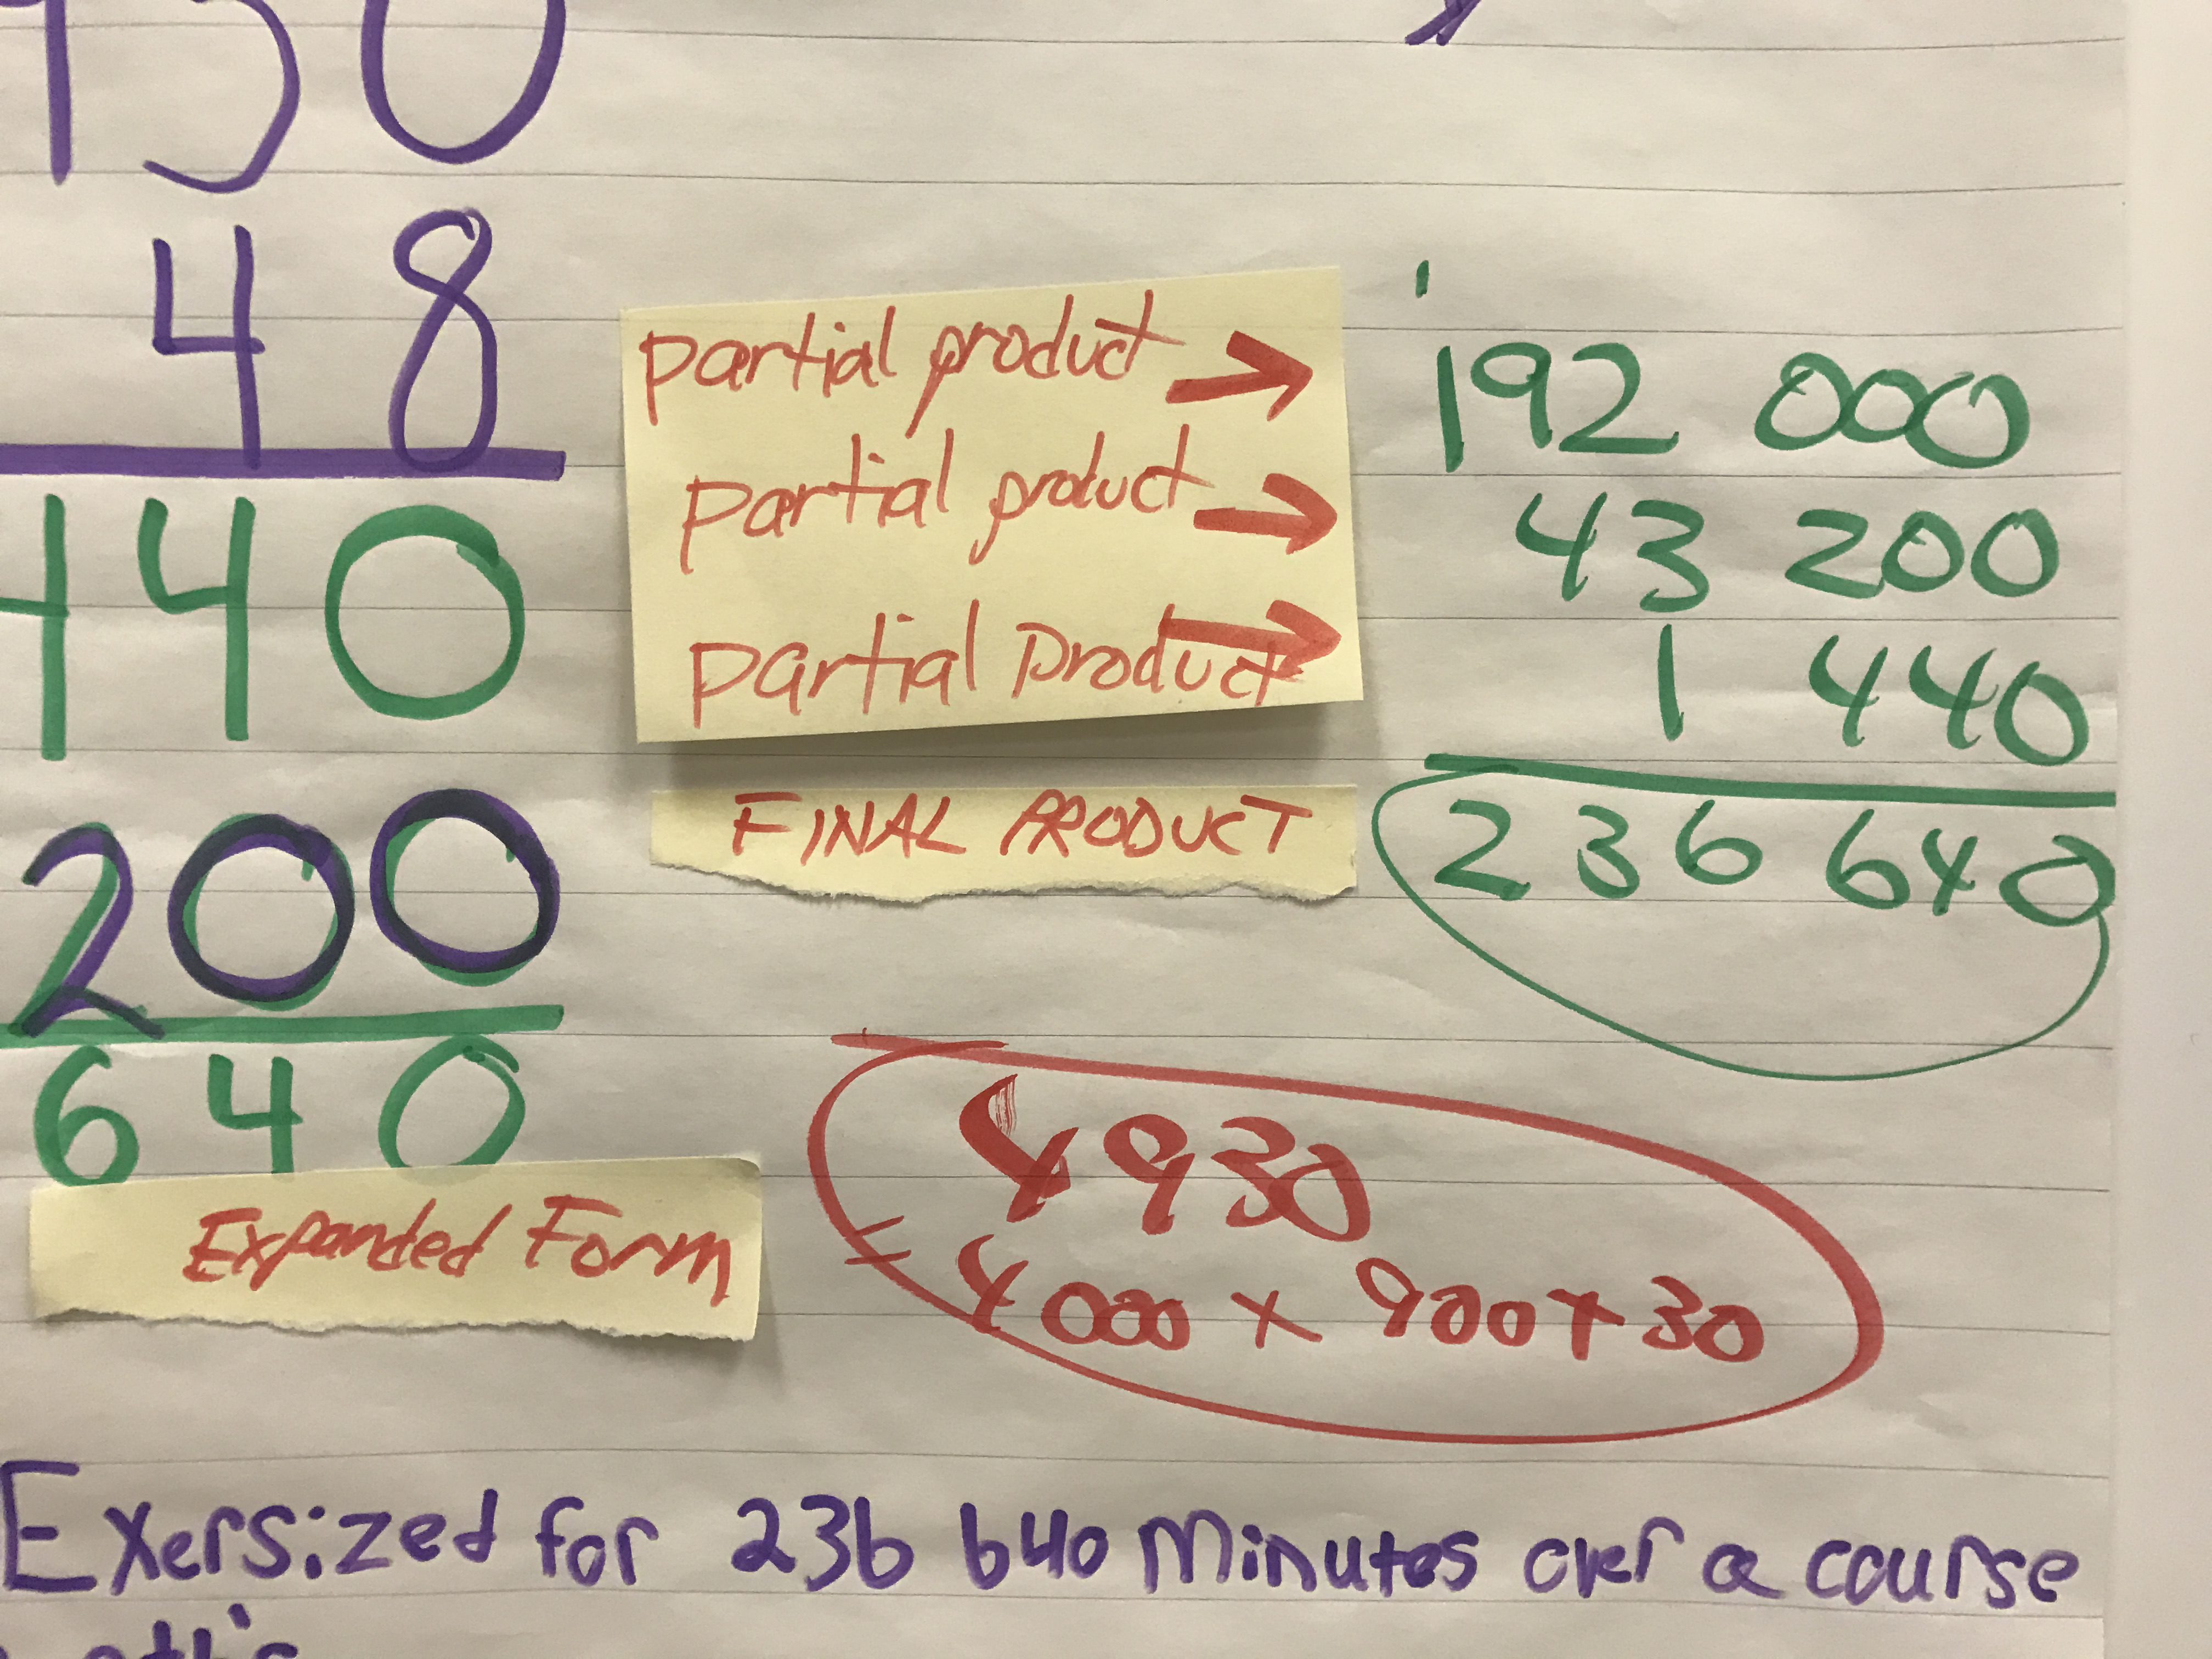 930
48
440
200
640
partial product → 192 000
partial product → 43 200
partial product → 1 440
FINAL PRODUCT 236 640
Expanded Form
4930
= 4000 x 900 + 30
Exersized for 236 640 Minutes over a course